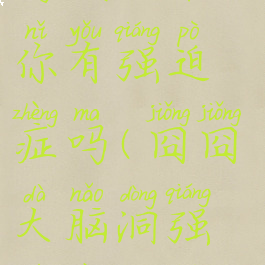 nǐ yǒu qiáng pò
你有强迫
zhèng ma jiǒng jiǒng
症吗(囧囧
dà nǎo dòng qiáng
大脑洞强